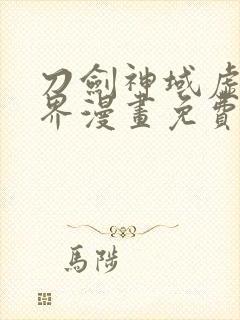 刀劍神域虛
界漫畫免費
馬陟